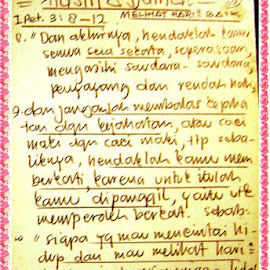 I Pet. 3: 8-12 MELIHAT HARI2 BAIK
8. "Dan akhirnya, hendaklah kamu
semua seia sekata, seperasaan,
mengasihi saudara-saudara,
penyayang dan rendah hati,
9. dan janganlah membalas kejaha
tan dgn kejahatan, atau caci
maki dgn caci maki, ttp seba-
liknya, hendaklah kamu mem
berkati, karena untuk itulah
kamu dipanggil, yaitu utk
memperoleh berkat. sebab:
10 "siapa yg mau mencintai hi-
dup dan mau melihat hari2